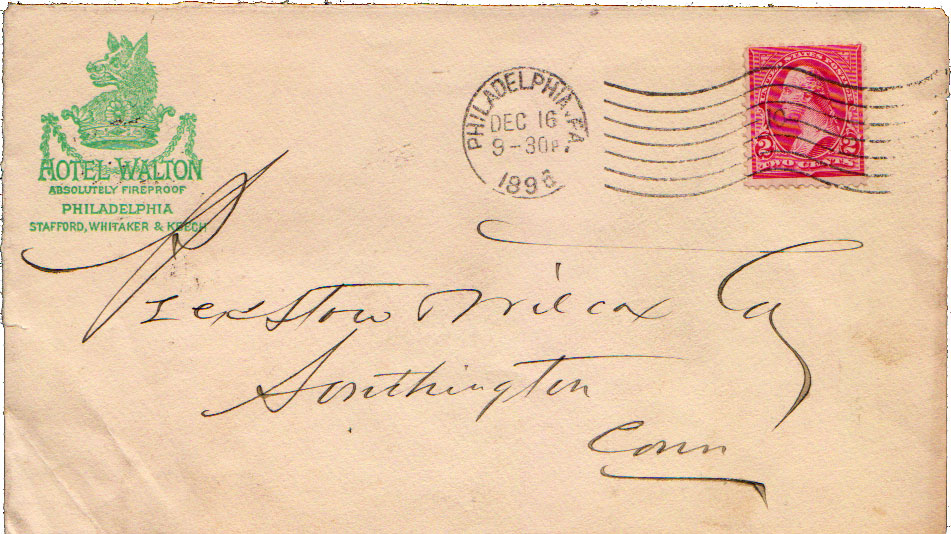 HOTEL WALTON
ABSOLUTELY FIREPROOF
PHILADELPHIA
STAFFORD, WHITAKER & KEECH
PHILADELPHIA, PA.
DEC 16
9-30P.
UNITED STATES POSTAGE
2 2
TWO CENTS
Peck Stow Wilcox Co
Southington
Conn